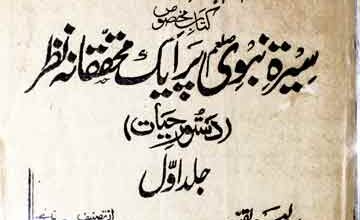 کتاب مخصوص
سیرۃ نبوی صلعم پر ایک محققانہ نظر
(دستورِ حیات)
جلد اوّل
از تصنیف